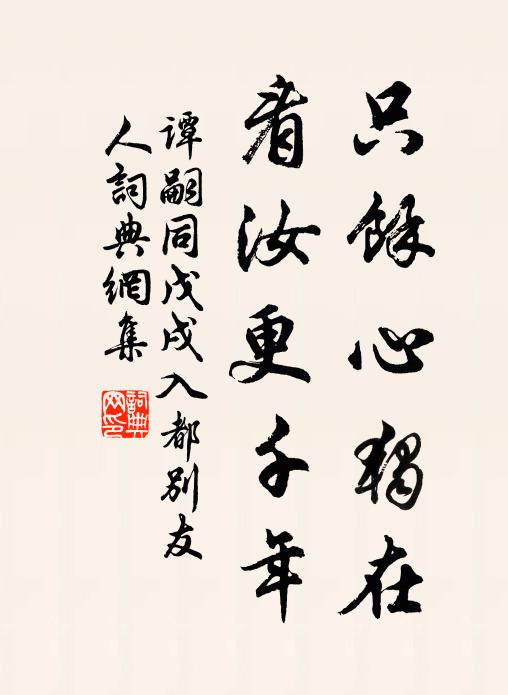 只餘心獨在
看汝更千年
谭嗣同戊戌入都別友
人詞典網集
詞典
网印